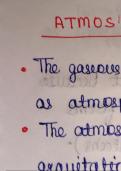 ATMOS
• The gaseous
as atmosp
• The atmos
gravitati